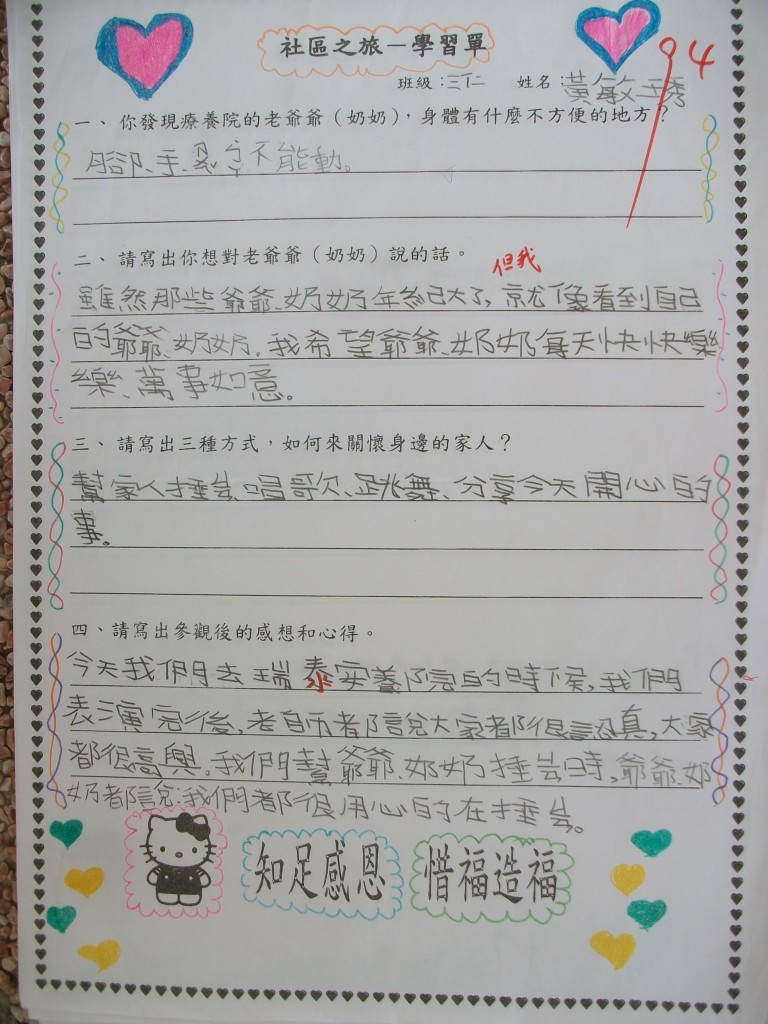 社區之旅－學習單
94
班級：三仁 姓名：黃敏琇
一、你發現療養院的老爺爺（奶奶），身體有什麼不方便的地方？
腳、手、不能動。
二、請寫出你想對老爺爺（奶奶）說的話。
但我
雖然那些爺爺、奶奶年紀大了，就像看到自己
的爺爺、奶奶。我希望爺爺、奶奶每天快快樂
樂、萬事如意。
三、請寫出三種方式，如何來關懷身邊的家人？
幫家人捶背、唱歌、跳舞、分享今天開心的
事。
四、請寫出參觀後的感想和心得。
今天我們去瑞泰安養院的時候，我們
表演完後，老師都說大家都很認真，大家
都很高興。我們幫爺爺、奶奶捶背時，爺爺、奶
奶都說：我們都很用心的在捶背。
知足感恩
惜福造福